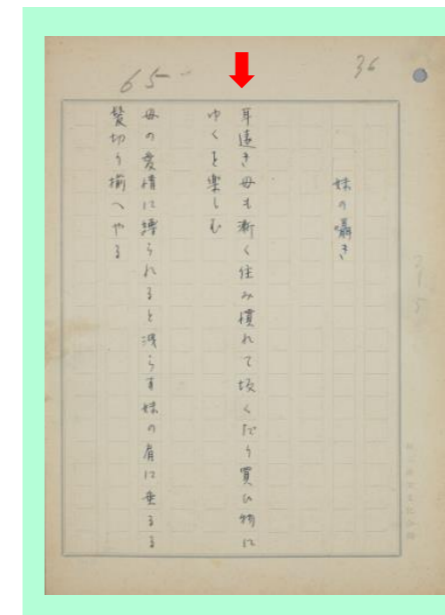 36
65
妹の囁き
耳遠き母も漸く住み慣れて坂くだり買ひ物に
ゆくを楽しむ
母の愛情に縛られると洩らす妹の肩に垂るる
髪切り揃へやる